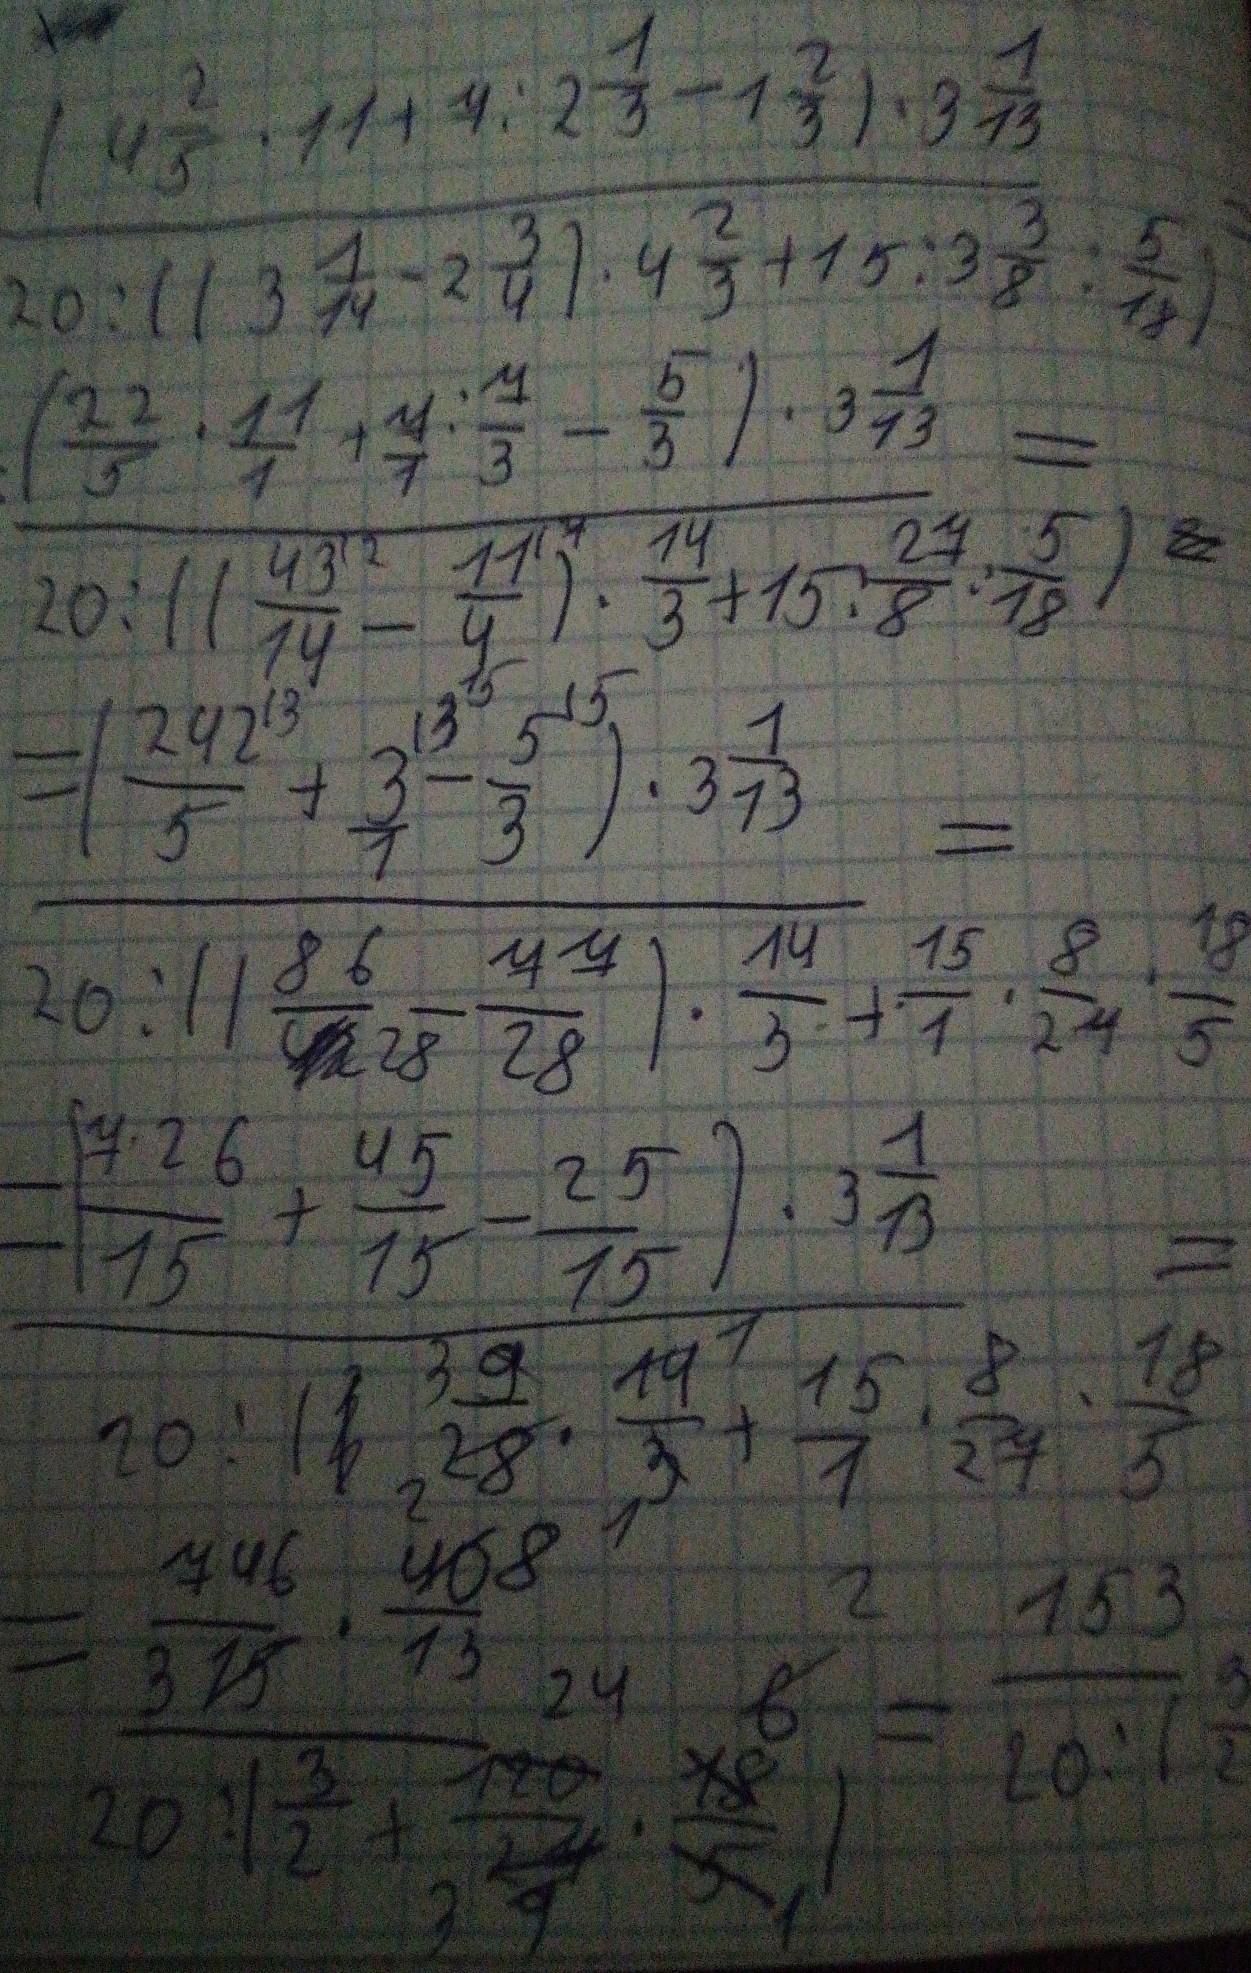 (4 2/5 · 11 + 7 : 2 1/3 - 1 2/3) · 3 1/13
20 : ((3 1/14 - 2 3/4) · 4 2/3 + 15 : 3 3/8 : 5/18)
(22/5 · 11/1 + 7/1 : 7/3 - 5/3) · 3 1/13 =
20 : ((43/14 - 11/4) · 14/3 + 15 : 27/8 : 5/18)
= (242/5 + 3/1 - 5/3) · 3 1/13 =
20 : ((86/28 - 77/28) · 14/3 + 15/1 · 8/27 · 18/5
= (726/15 + 45/15 - 25/15) · 3 1/13 =
20 : (9/28 · 14/3 + 15/1 · 8/27 · 18/5
= 746/15 · 40/13 = 153
20 : (3/2 + 120/27 · 18/5) 20 : (3/2